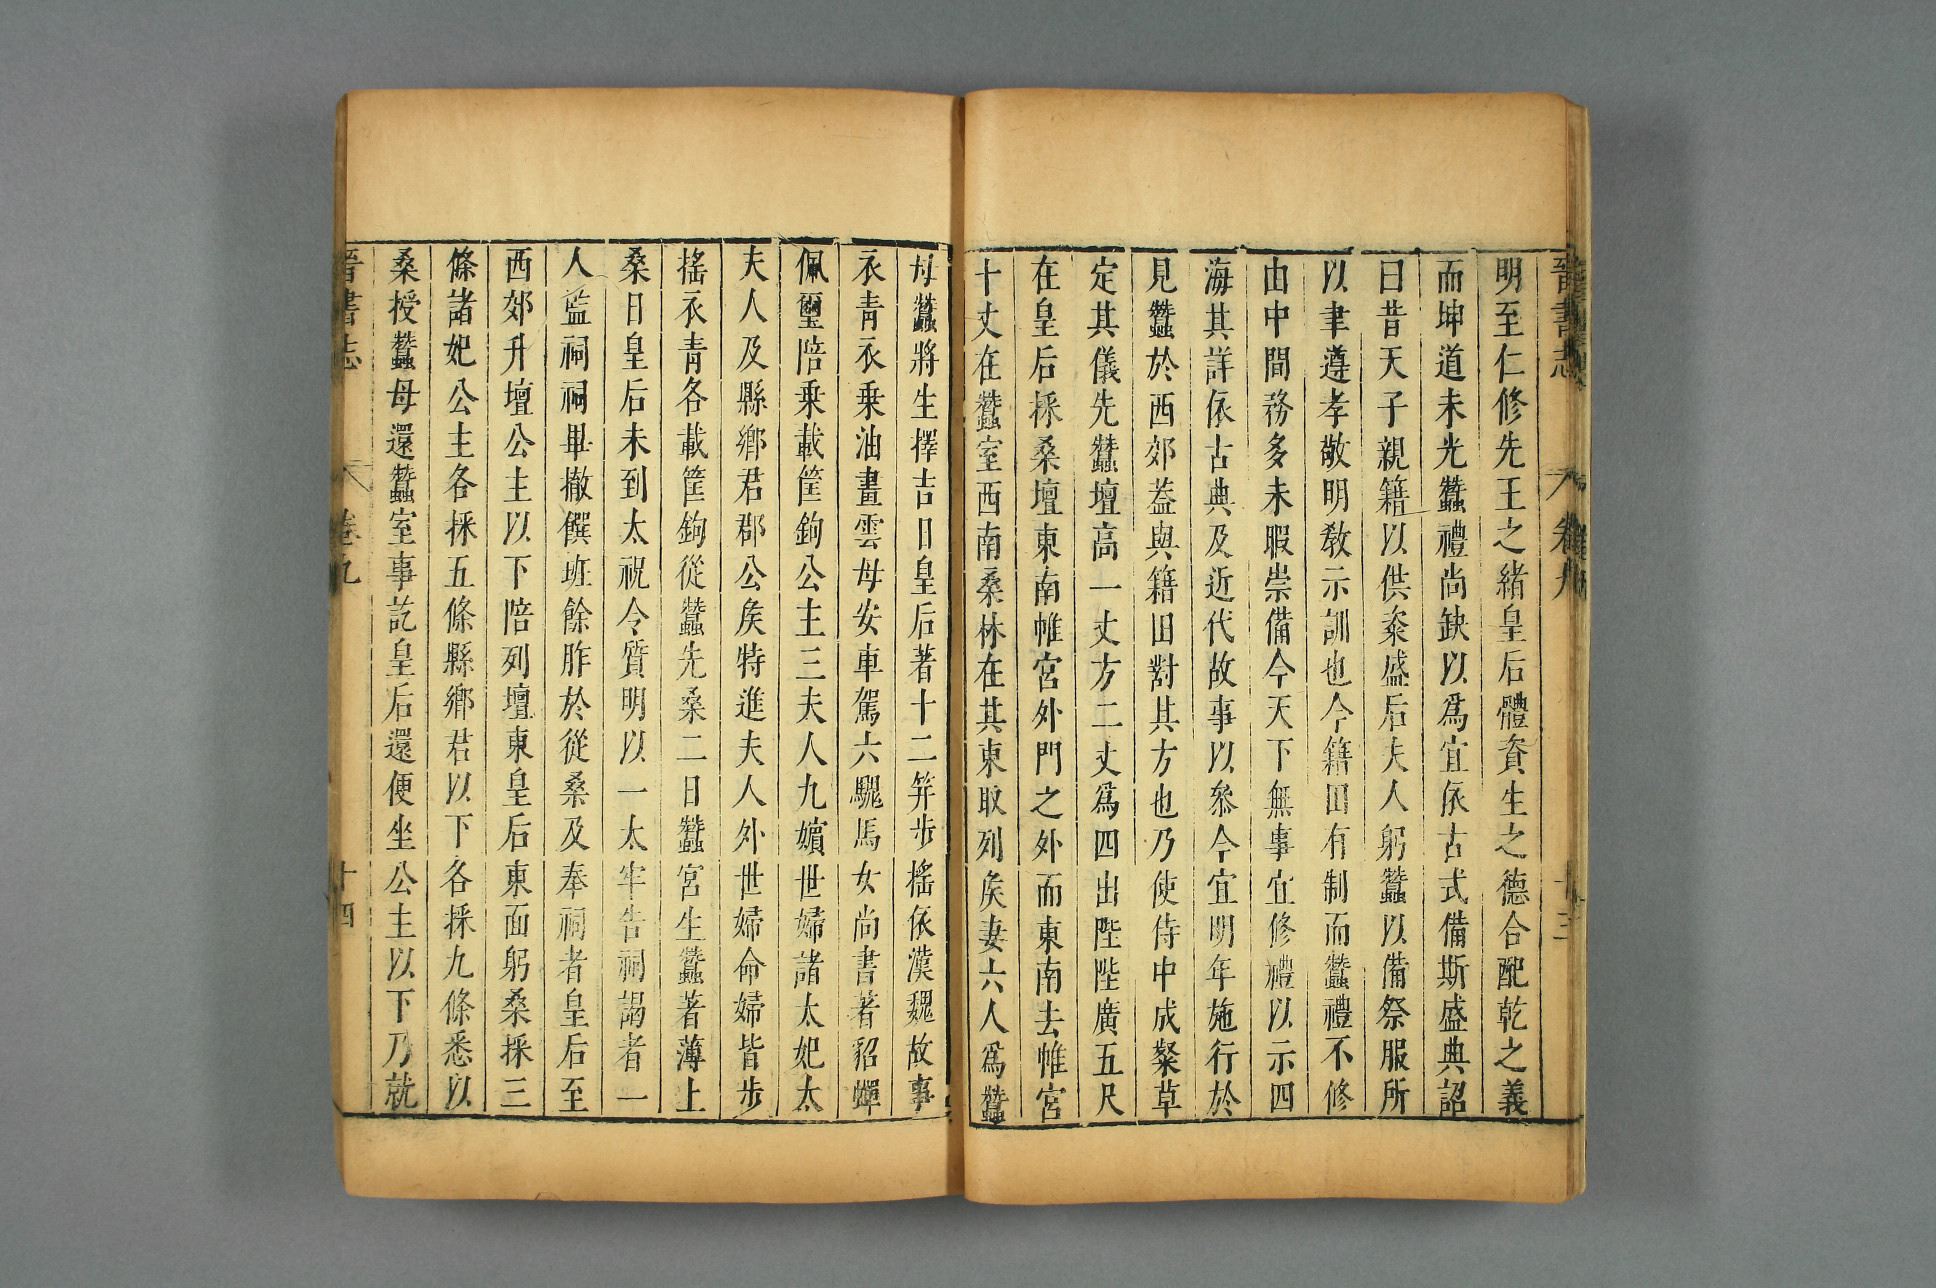 晉書志 卷九 十三
明至仁修先王之緒皇后體資生之德合配乾之義
而坤道未光蠶禮尚缺以爲宜依古式備斯盛典詔
曰昔天子親籍以供粢盛后夫人躬蠶以備祭服所
以聿遵孝敬明教示訓也今籍田有制而蠶禮不修
由中間務多未暇崇備今天下無事宜修禮以示四
海其詳依古典及近代故事以參今宜明年施行於
是蠶於西郊蓋與籍田對其方也乃使侍中成粲草
定其儀先蠶壇高一丈方二丈爲四出陛陛廣五尺
在皇后採桑壇東南帷宮外門之外而東南去帷宮
十丈在蠶室西南桑林在其東取列矦妻六人爲蠶
母蠶將生擇吉日皇后著十二笄步搖依漢魏故事
衣青衣乗油畫雲母安車駕六騩馬女尚書著貂蟬
佩璽陪乗載筐鉤公主三夫人九嬪世婦諸太妃太
夫人及縣鄉君郡公矦特進夫人外世婦命婦皆步
搖衣青各載筐鉤從蠶先桑二日蠶宮生蠶著薄上
桑日皇后未到太祝令質明以一太牢告祠謁者一
人監祠祠畢撤饌班餘胙於從桑及奉祠者皇后至
西郊升壇公主以下陪列壇東皇后東面躬桑採三
條諸妃公主各採五條縣鄉君以下各採九條悉以
桑授蠶母還蠶室事訖皇后還便坐公主以下乃就
晉書志 卷九 十四